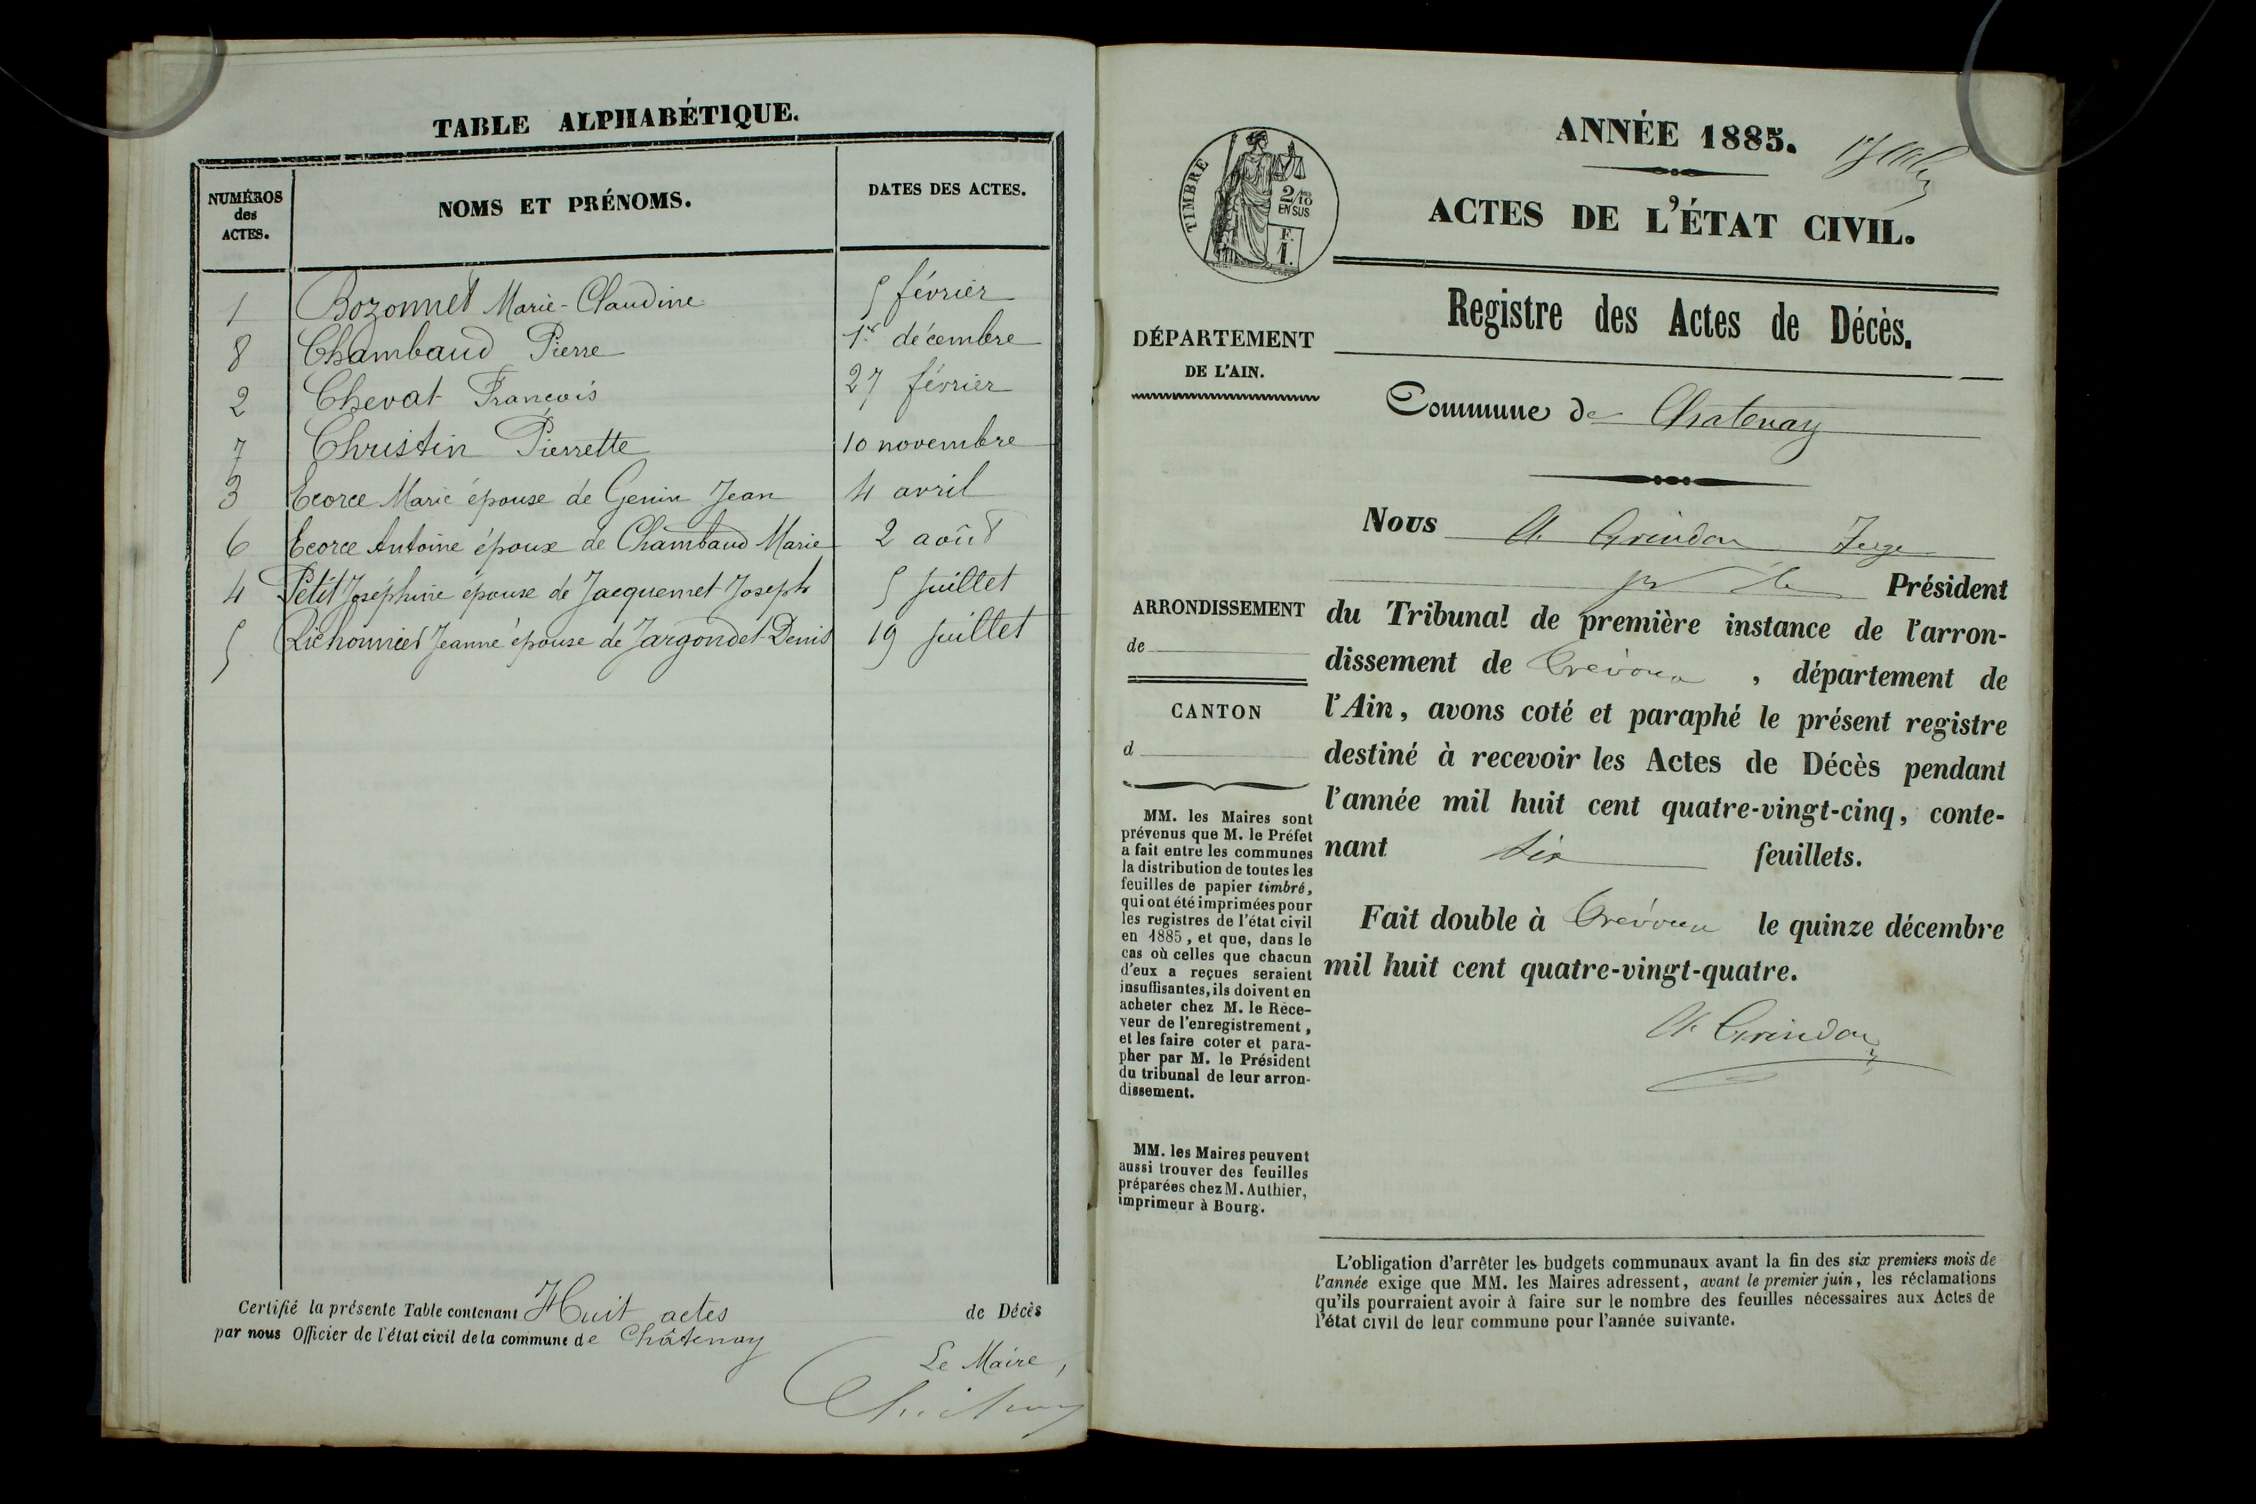 TABLE ALPHABÉTIQUE.
NUMÉROS des ACTES. NOMS ET PRÉNOMS. DATES DES ACTES.
1 Bozonnet Marie-Claudine 5 février
8 Chambaud Pierre 1er décembre
2 Chevat François 27 février
7 Christin Pierrette 10 novembre
3 Ecorce Marie épouse de Genin Jean 4 avril
6 Ecorce Antoine époux de Chambaud Marie 2 août
4 Petit Joséphine épouse de Jacquemet Joseph 5 juillet
5 Jeanne épouse de Jargondet Denis 19 juillet
Certifié la présente Table contenant Huit actes de Décès
par nous Officier de l'état civil de la commune de Châtenay
Le Maire,
ANNÉE 1885.
ACTES DE L'ÉTAT CIVIL.
TIMBRE
2/10
EN SUS
F.
1.
Registre des Actes de Décès.
DÉPARTEMENT
DE L'AIN.
Commune de Chatenay
Nous Grindon Juge
Président
du Tribunal de première instance de l'arron-
dissement de Trévoux, département de
l'Ain, avons coté et paraphé le présent registre
destiné à recevoir les Actes de Décès pendant
l'année mil huit cent quatre-vingt-cinq, conte-
nant six feuillets.
Fait double à Trévoux le quinze décembre
mil huit cent quatre-vingt-quatre.
Grindon
ARRONDISSEMENT
de
CANTON
d
MM. les Maires sont
prévenus que M. le Préfet
a fait entre les communes
la distribution de toutes les
feuilles de papier timbré,
qui ont été imprimées pour
les registres de l'état civil
en 1885, et que, dans le
cas où celles que chacun
d'eux a reçues seraient
insuffisantes, ils doivent en
acheter chez M. le Rece-
veur de l'enregistrement,
et les faire coter et para-
pher par M. le Président
du tribunal de leur arron-
dissement.
MM. les Maires peuvent
aussi trouver des feuilles
préparées chez M. Authier,
imprimeur à Bourg.
L'obligation d'arrêter les budgets communaux avant la fin des six premiers mois de
l'année exige que MM. les Maires adressent, avant le premier juin, les réclamations
qu'ils pourraient avoir à faire sur le nombre des feuilles nécessaires aux Actes de
l'état civil de leur commune pour l'année suivante.